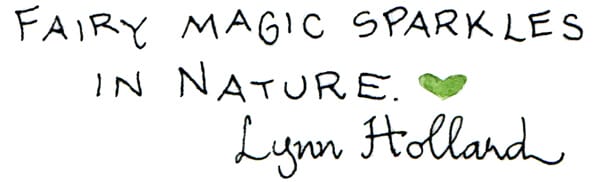 FAIRY MAGIC SPARKLES
IN NATURE.
Lynn Holland